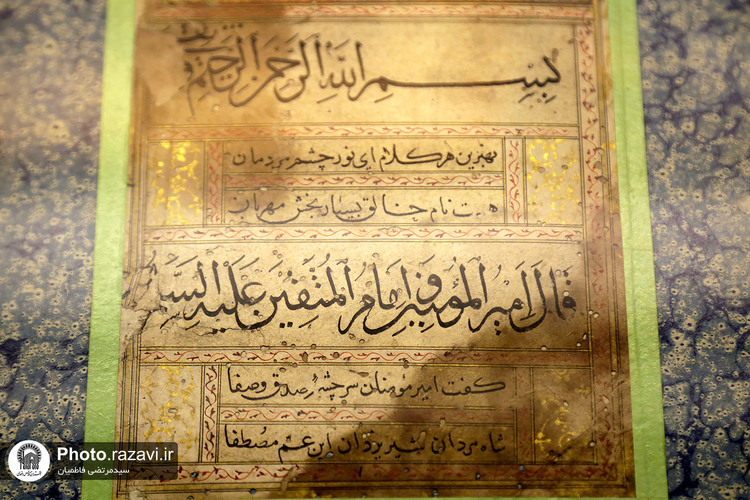 بسم الله الرحمن الرحیم
بهترین هر کلام ای نور چشم مردمان
هست نام خالق بسیار بخش مهربان
قال امیر المؤمنین و امام المتقین علیه السلام
گفت امیر مؤمنان سر چشمه صدق و صفا
شاه مردان شیر یزدان ابن عم مصطفا
Photo.razavi.ir
سیدمرتضی فاطمیان